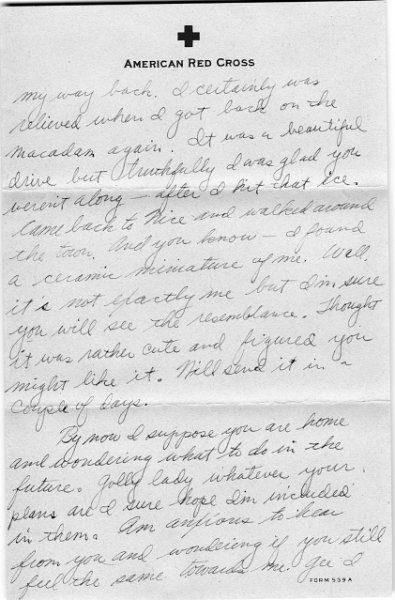 AMERICAN RED CROSS
my way back. I certainly was
relieved when I got back on the
macadam again. It was a beautiful
drive but truthfully I was glad you
weren't along – after I hit that ice.
Came back to Nice and walked around
the town. And you know – I found
a ceramic miniature of me. Well,
it's not exactly me but I'm sure
you will see the resemblance. Thought
it was rather cute and figured you
might like it. Will send it in a
couple of days.
By now I suppose you are home
and wondering what to do in the
future. Golly lady whatever your
plans are I sure hope I'm included
in them. Am anxious to hear
from you and wondering if you still
feel the same towards me. Gee I
FORM 539 A